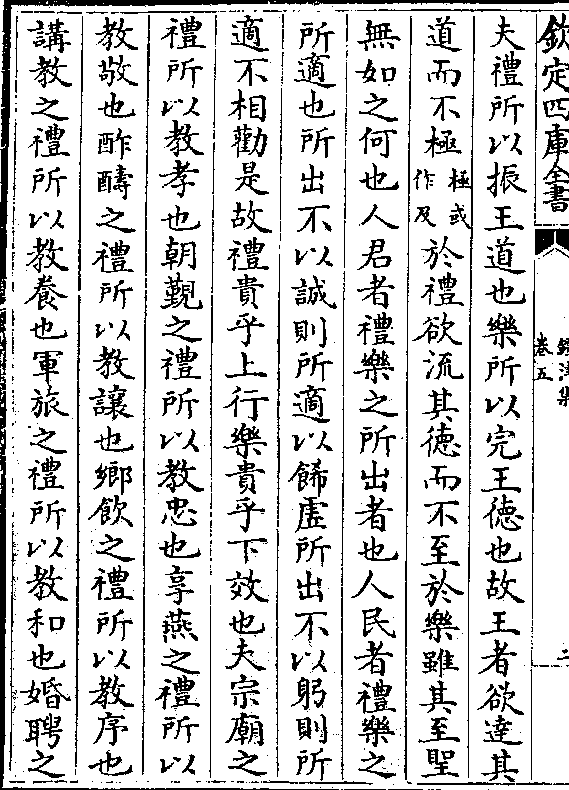 欽定四庫全書
鐔津集
卷五
二
夫禮所以振王道也樂所以完王德也故王者欲達其
道而不極極或作及於禮欲流其德而不至於樂雖其至聖
無如之何也人君者禮樂之所出者也人民者禮樂之
所適也所出不以誠則所適以餙虚所出不以躬則所
適不相勸是故禮貴乎上行樂貴乎下效也夫宗廟之
禮所以教孝也朝覲之禮所以教忠也享燕之禮所以
教敬也酢醻之禮所以教讓也鄉飲之禮所以教序也
講教之禮所以教養也軍旅之禮所以教和也婚聘之